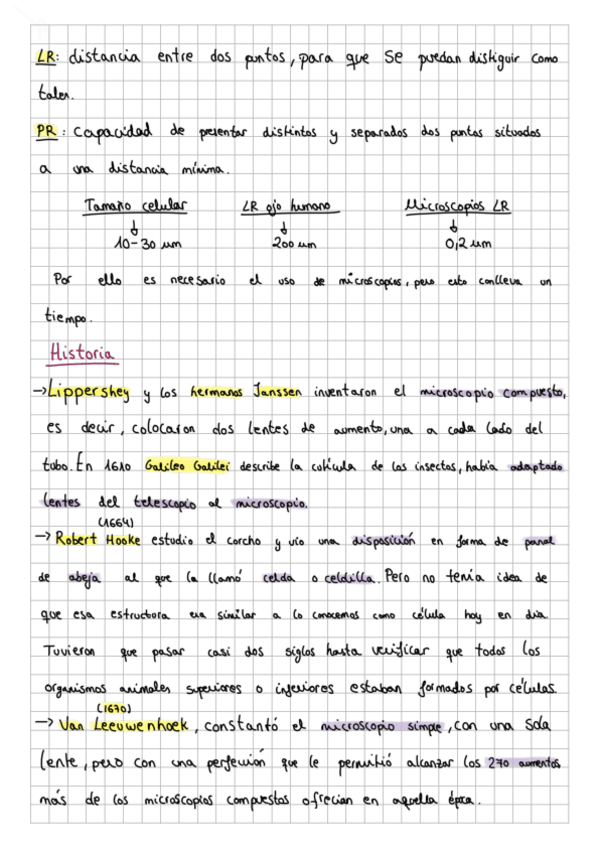 LR: distancia entre dos puntos, para que se puedan distiguir como
tales.
PR: Capacidad de presentar distintos y separados dos puntos situados
a una distancia mínima.
Tamaño celular LR ojo humano Microscopios LR
↓ ↓ ↓
10-30 um 200 um 0,2 um
Por ello es necesario el uso de microscopios, pero esto conlleva un
tiempo.
Historia
→Lippershey y los hermanos Janssen inventaron el microscopio compuesto,
es decir, colocaron dos lentes de aumento, una a cada lado del
tubo. En 1610 Galileo Galilei describe la cutícula de los insectos, había adaptado
lentes del telescopio al microscopio.
(1664)
→ Robert Hooke estudio el corcho y vio una disposición en forma de panal
de abeja al que la llamó celda o celdilla. Pero no tenía idea de
que esa estructura era similar a lo conocemos como célula hoy en día
Tuvieron que pasar casi dos siglos hasta verificar que todos los
organismos animales superiores o inferiores estaban formados por células.
(1670)
→ Van Leeuwenhoek, constantó el microscopio simple, con una sola
lente, pero con una perfección que le permitió alcanzar los 270 aumentos
más de los microscopios compuestos ofrecian en aquella época.